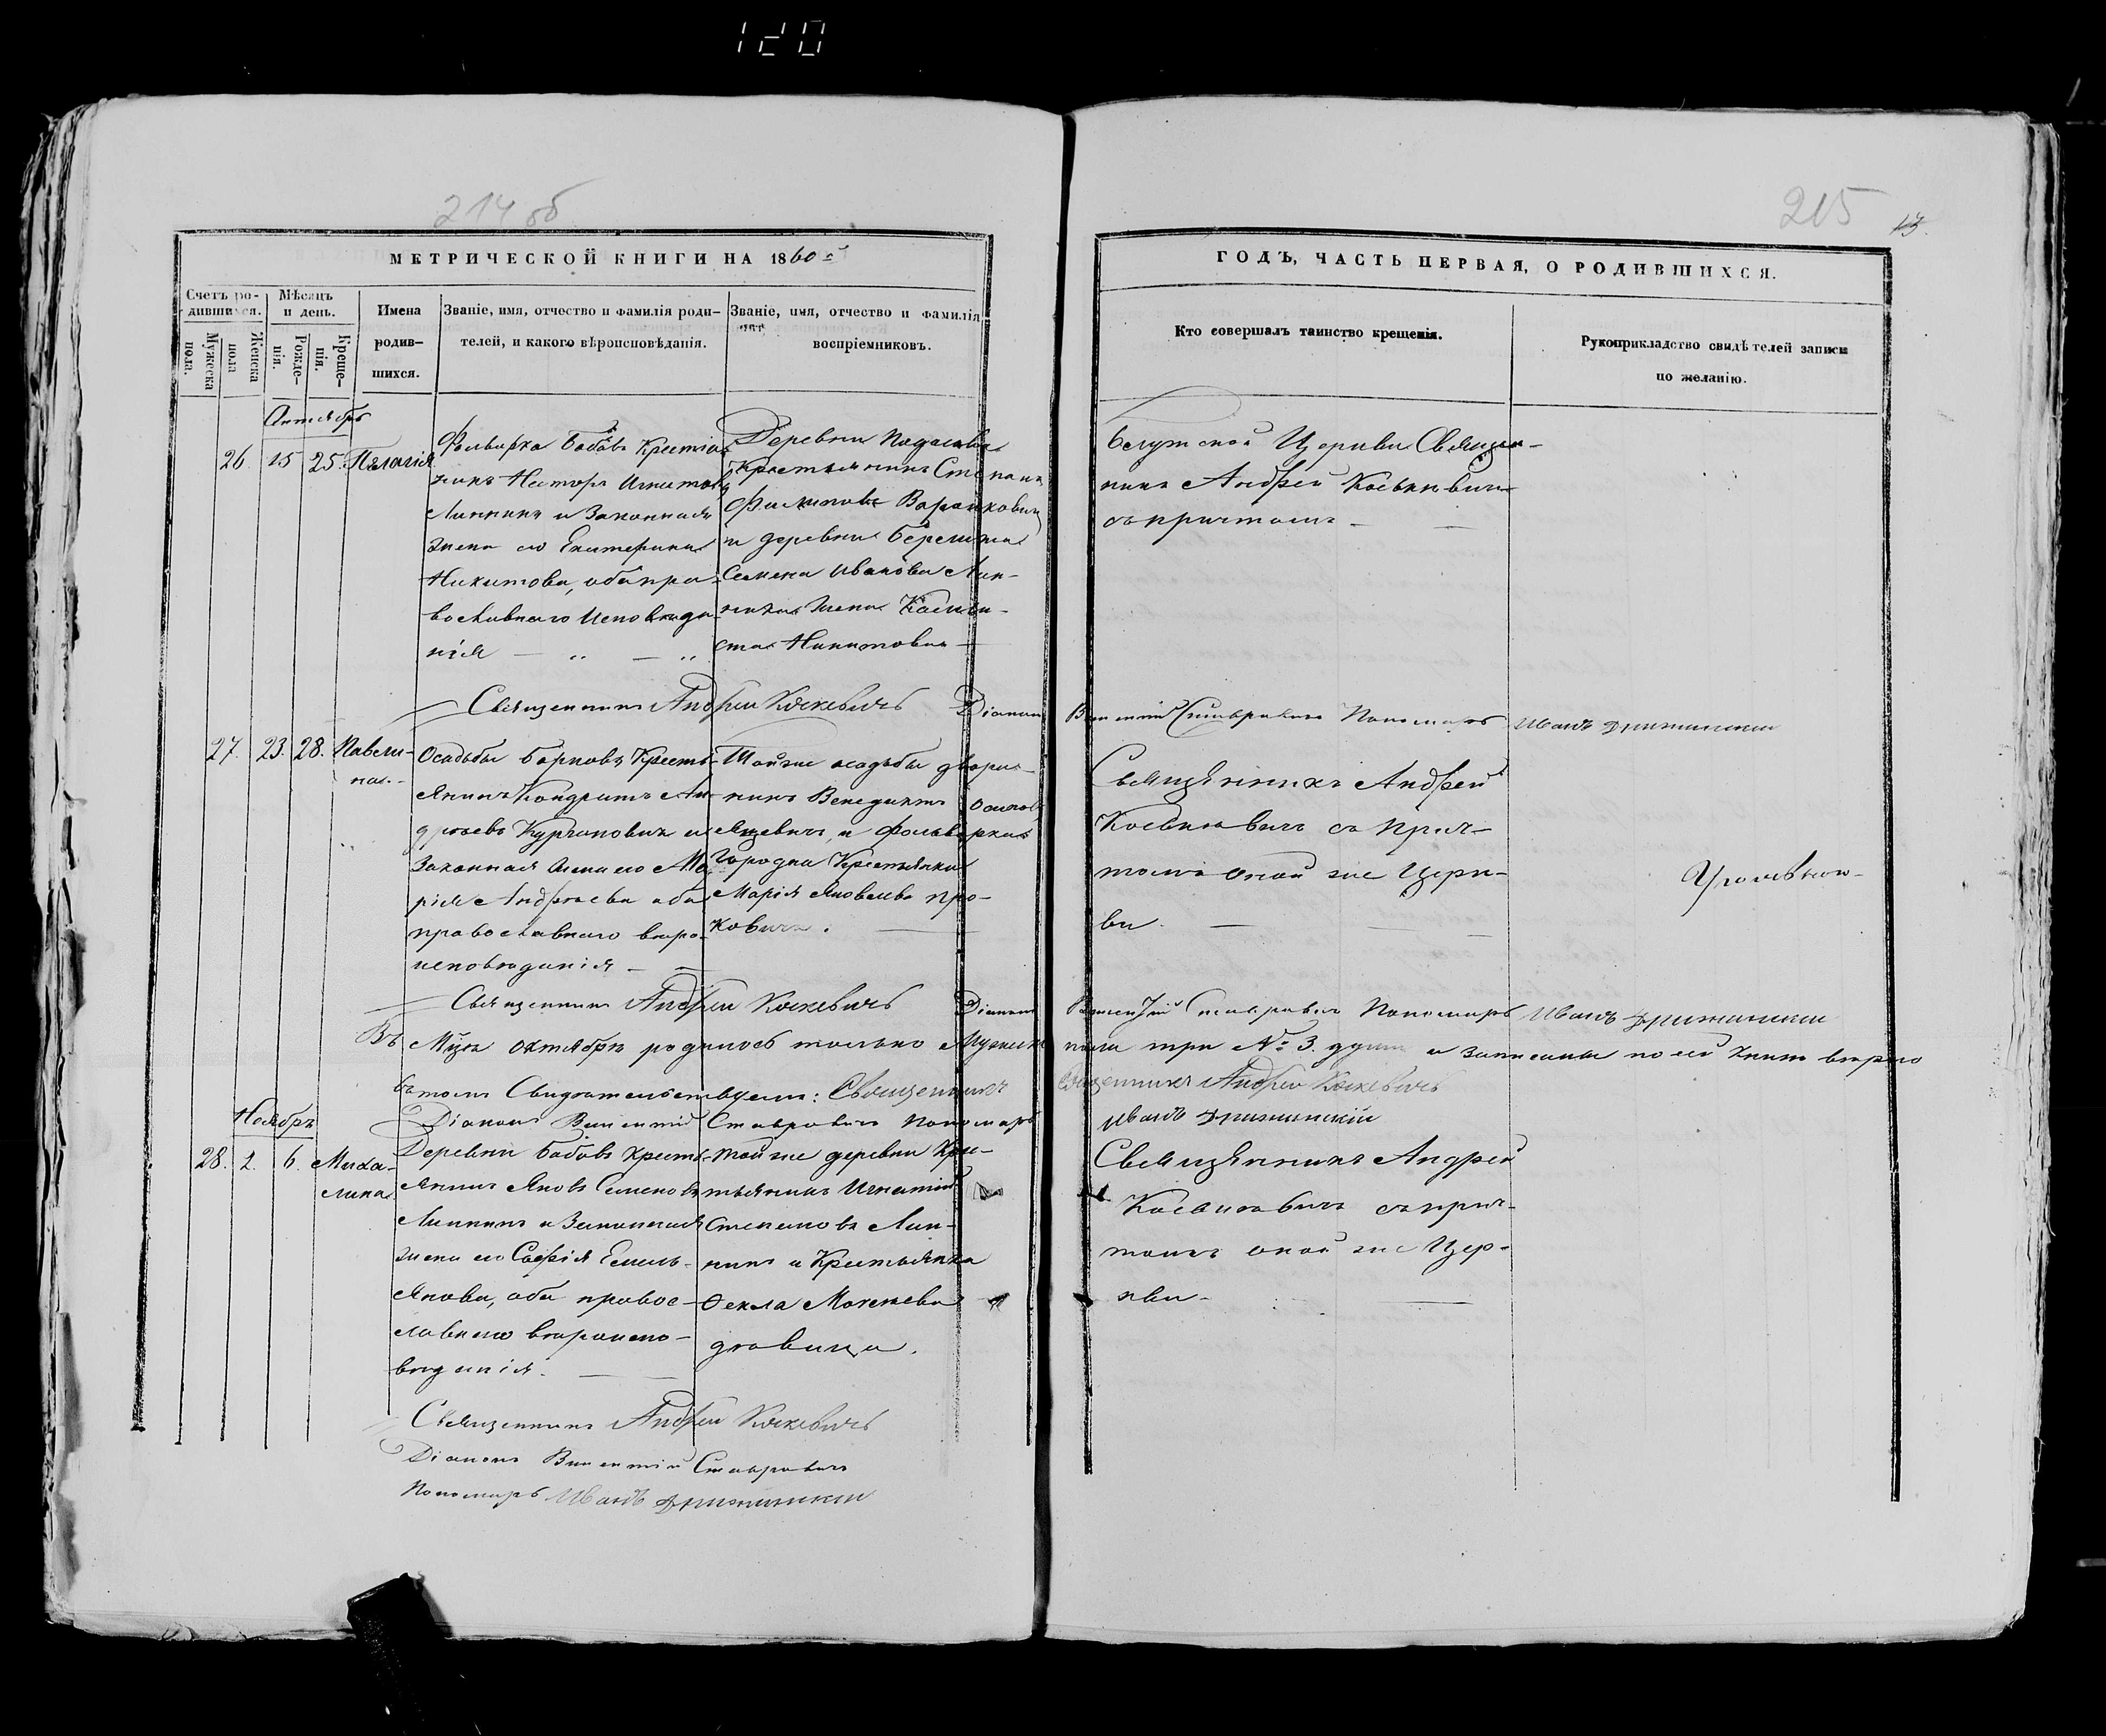 120
214 об
215
13.
МЕТРИЧЕСКОЙ КНИГИ НА 1860й
ГОДЪ, ЧАСТЬ ПЕРВАЯ, О РОДИВШИХСЯ.
Счетъ ро-
дившихся.
Мужеска пола.
Женска пола
Мѣсяцъ
и день.
Рожде-
нія.
Креще-
нія.
Имена
родив-
шихся.
Званіе, имя, отчество и фамилія роди-
телей, и какого вѣроисповѣданія.
Званіе, имя, отчество и фамилія
воспріемниковъ.
Кто совершалъ таинство крещенія.
Рукоприкладство свидѣтелей записи
по желанію.
Октябрь
26. 15 25. Пелагія
Фольварка Бабовъ Крестья
нинъ Несторъ Игнатовъ
Липникъ и Законная
жена его Екатерина
Никитова, оба пра-
вославнаго Исповѣда
нія
Деревни
Крестьянинъ Степанъ
Филиповъ
и деревни
Семена Иванова Лип-
ника жена
ста Никитова
Церкви Священ-
никъ Андрей Коскевичъ
съ причтомъ
Священникъ Андрей Коскевичъ Діаконъ Викентій Ставровичъ Пономарь Иванъ
27. 23. 28. Павли-
на.
Осадьбы Барновъ Кресть-
янинъ Кондратъ Ан-
дреевъ и
Законная жена его Ма-
рія Андреева оба
православнаго вѣро-
исповѣданія
Тойже осадьбы дворя-
нинъ Венедиктъ Осиповъ
и фольварка
Городна Крестьянка
Марія Яковлева Про-
ковичъ.
Священникъ Андрей
Коскевичъ съ Прич-
томъ оной же Церк-
ви.
Священникъ Андрей Коскевичъ Діаконъ Викентій Ставровичъ Пономарь Иванъ
Въ Мцѣ октябрѣ родилось только Мужеск пола три № 3. души и записаны по сей Книгѣ вѣрно
въ томъ Свидѣтельствуемъ: Священникъ Андрей Коскевичъ
Діаконъ Викентій Ставровичъ Пономарь Иванъ
Ноябрь
28. 2. 6. Миха-
лина
Деревни Бабовъ Кресть-
янинъ Яковъ Семеновъ
Липникъ и Законная
жена его Софія Емель-
янова, оба правос-
лавнаго вѣроиспо-
вѣданія.
Тойже деревни Кре-
стьянинъ Игнатій
Степановъ Лип-
никъ и Крестьянка
Ѳекла Матвеева
дѣвица.
Священникъ Андрей
Коскевичъ съ прич-
томъ оной же Цер-
кви
Священникъ Андрей Коскевичъ
Діаконъ Викентій Ставровичъ
Пономарь Иванъ